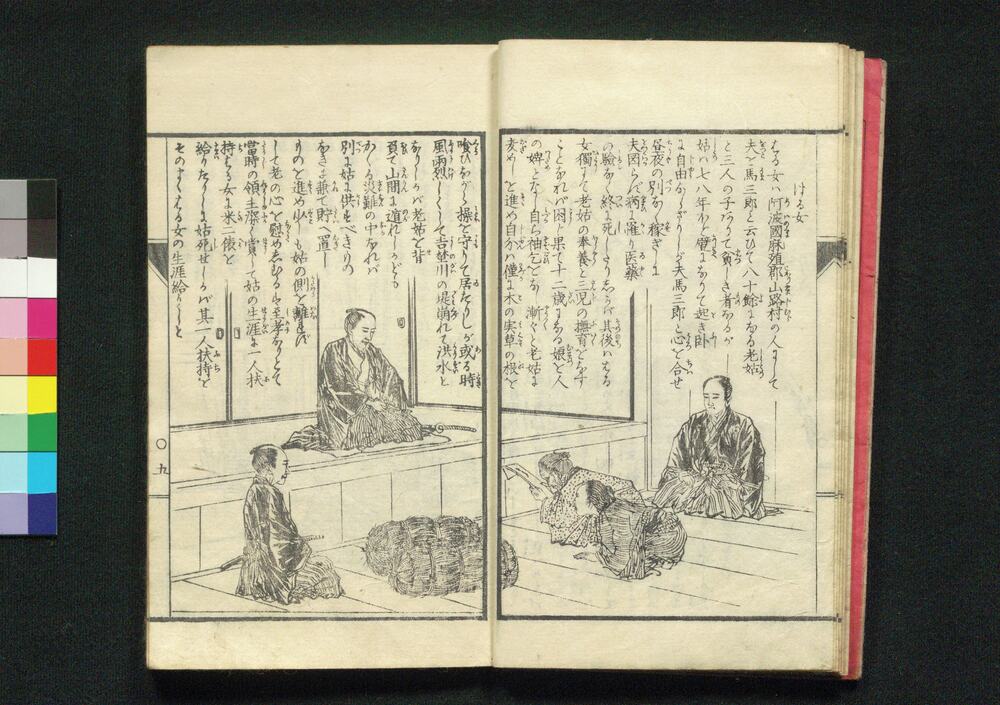 はる女
はる女ハ阿波國麻殖郡山路村の人にして
夫を馬三郎と云ひて八十餘になる老姑
と三人の子ありて貧しき者なるが
姑ハ七八年わど壁になりて起き卧
も自由ならざりしが夫馬三郎と心を合せ
昼夜の別なく稼ぎしに
夫図らず病に罹り医藥
の驗なく終に死したりしかば其後ははる
女獨りて老姑の奉養と三児の撫育をなす
ことなれバ困じ果て十二歳になる娘を人
の婢となし自らは袖乞をなし漸々と老姑に
麦めしを進め自分ハ僅に木の実草の根を
喰ひながら操を守りて居たりしが或る時
風雨烈しくして吉野川の堤崩れて洪水と
なりしかバ老姑を背
負て山間に遁れしかども
かゝる災難の中なれバ
別に姑に供すべきもの
なきに兼て貯へ置し
ものを進め少しも姑の側を離れず
して老の心を慰めたるハ至孝なりとて
當時の領主深く賞して姑の生涯に一人扶
持はる女に米二俵を
給りたりしに姑死せしかバ其一人扶持を
そのまゝはる女の生涯給りしと
〇九